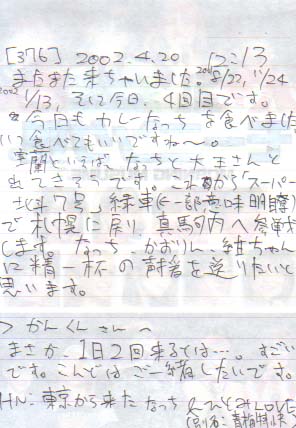 [376] 2002.4.20 12:13
またまた来ちゃいました。2001 8/22, 11/24
2002 1/13, そして今日、4回目です。
今日もカレーなっちを食べました
いつ食べてもいいですね〜。
といえば、なっちと大王さんと
出てきそうです。これから「スーパー
北斗7号」緑車(一部意味明瞭)
で札幌に戻り、真駒内へ参戦
します。なっち、かおりん、紺ちゃん
に精一杯の声援を送りたいと
思います。
> かんくんさんへ
まさか、1日2回来るとは…。すごい
です。こんどはご一緒したいです。
HN:東京から来たなっち&ひとみLOVE
(別名:青梅特快)